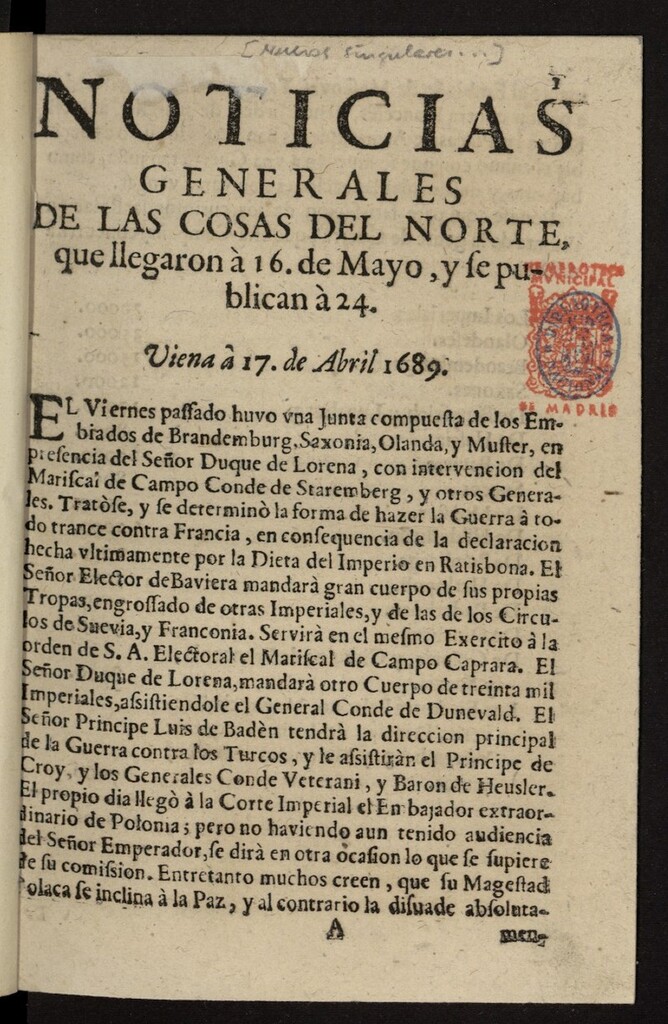 [Nuevas singulares...]
NOTICIAS
GENERALES
DE LAS COSAS DEL NORTE,
que llegaron à 16. de Mayo, y ſe pu-
blican à 24.
HEMEROTECA
MVNICIPAL
DE MADRID
Viena à 17. de Abril 1689.
EL Viernes paſſado huvo vna Junta compueſta de los Em-
biados de Brandemburg, Saxonia, Olanda, y Muſter, en
preſencia del Señor Duque de Lorena, con intervencion del
Mariſcal de Campo Conde de Staremberg, y otros Genera-
les. Tratòſe, y ſe determinò la forma de hazer la Guerra à to-
do trance contra Francia, en conſequencia de la declaracion
hecha vltimamente por la Dieta del Imperio en Ratisbona. El
Señor Elector de Baviera mandarà gran cuerpo de ſus propias
Tropas, engroſſado de otras Imperiales, y de las de los Circu-
los de Suevia, y Franconia. Servirà en el meſmo Exercito à la
orden de S. A. Electoral el Mariſcal de Campo Caprara. El
Señor Duque de Lorena, mandarà otro Cuerpo de treinta mil
Imperiales, aſsiſtiendole el General Conde de Dunevald. El
Señor Principe Luis de Badèn tendrà la direccion principal
de la Guerra contra los Turcos, y le aſsiſtiràn el Principe de
Croy, y los Generales Conde Veterani, y Baron de Heusler.
El propio dia llegò à la Corte Imperial el Embajador extraor-
dinario de Polonia; pero no haviendo aun tenido audiencia
del Señor Emperador, ſe dirà en otra òcaſion lo que ſe ſupiere
de ſu comiſsion. Entretanto muchos creen, que ſu Mageſtad
Polaca ſe inclina à la Paz, y al contrario la diſuade abſoluta-
A
men-